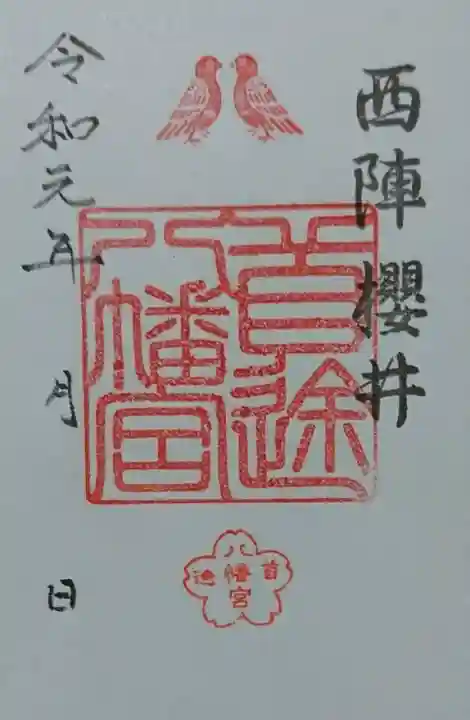 西陣櫻井
首途
八幡宮
首途
八幡宮
令和元年 月 日